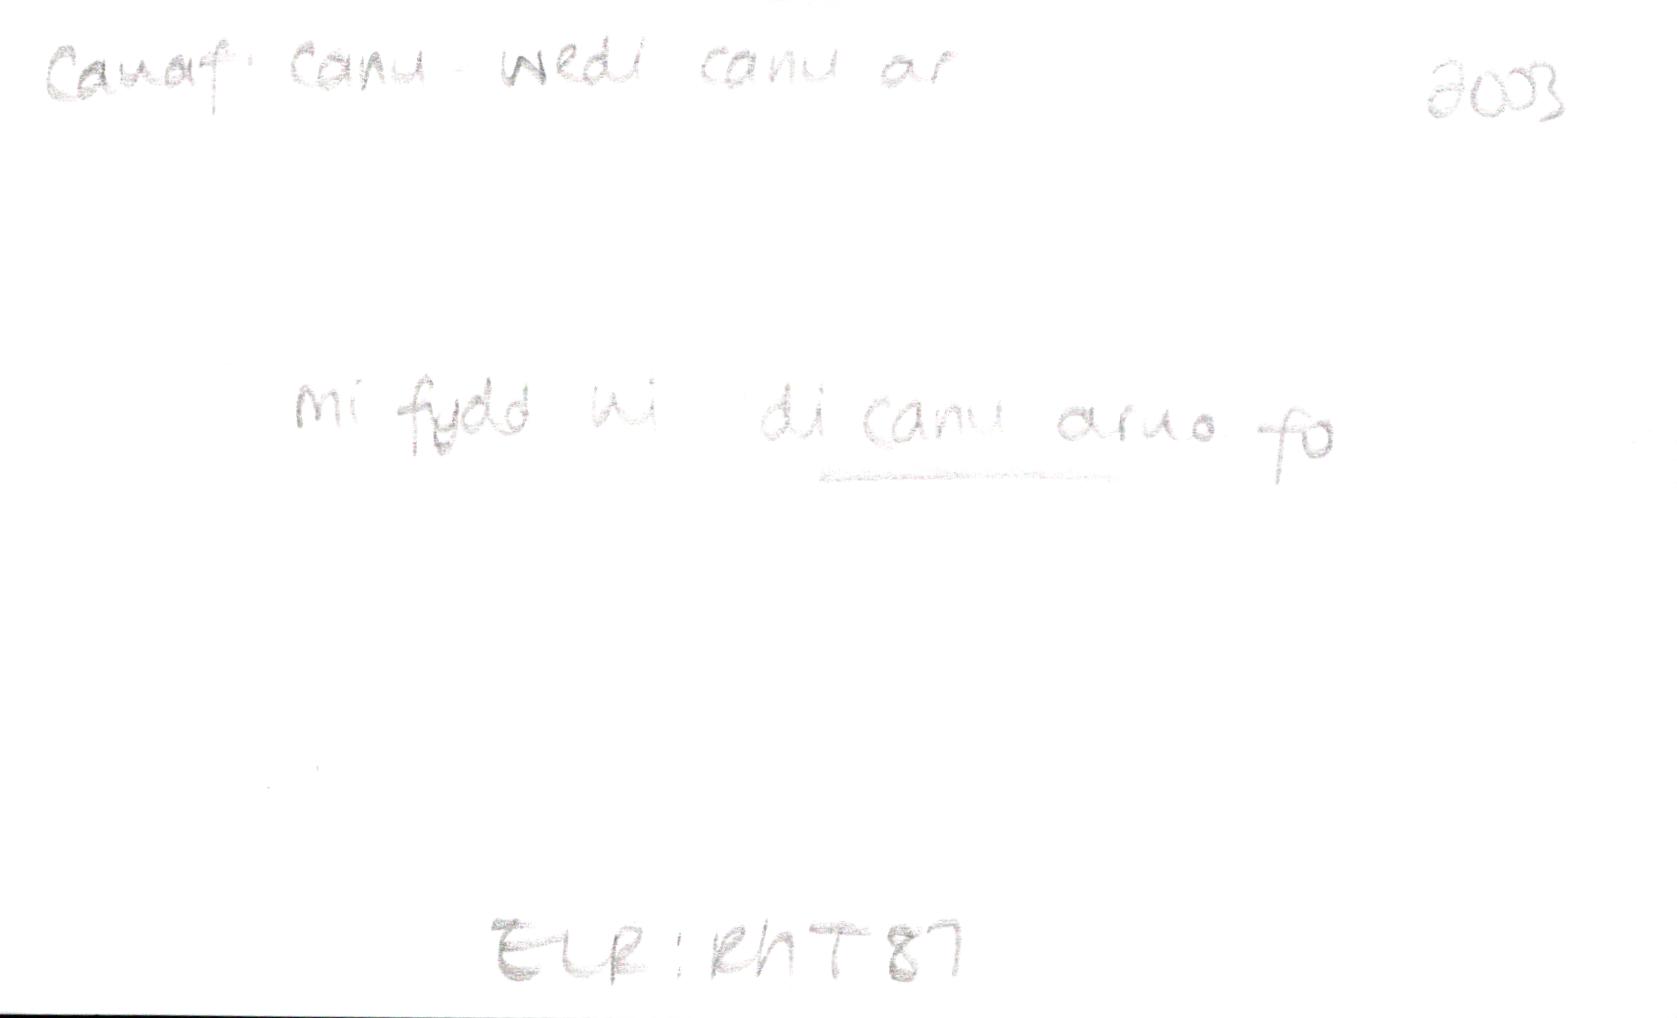 Canaf: Canu - wedi canu ar 2003
mi fydd hi di canu arno fo
ELR: RhT 87